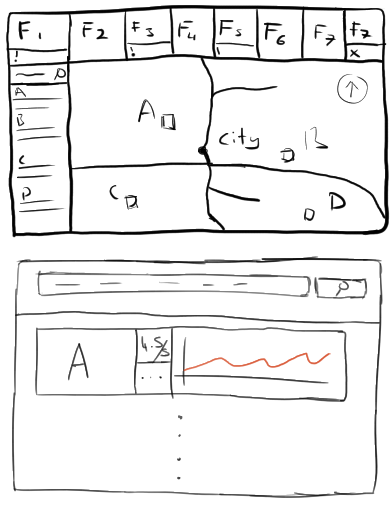 F1 F2 F3 F4 F5 F6 F7 F7
! ! ! x
A
B
C
D
A
City
B
C
D
A
4.5/5
...